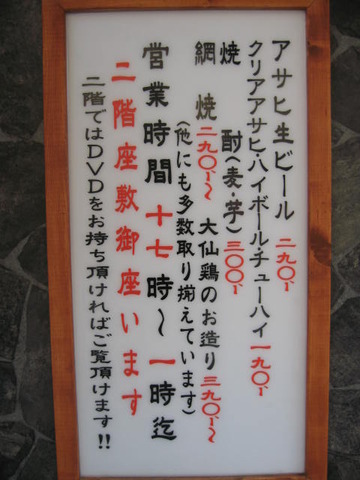 アサヒ生ビール 二九〇～
クリアアサヒ・ハイボール・チューハイ 一九〇～
焼酎(麦・芋) 三〇〇～
網焼 二九〇～ 大仙鶏のお造り 三九〇～
(他にも多数取り揃えています)
営業時間 十七時～一時迄
二階座敷御座います
二階ではDVDをお持ち頂ければご覧頂けます!!